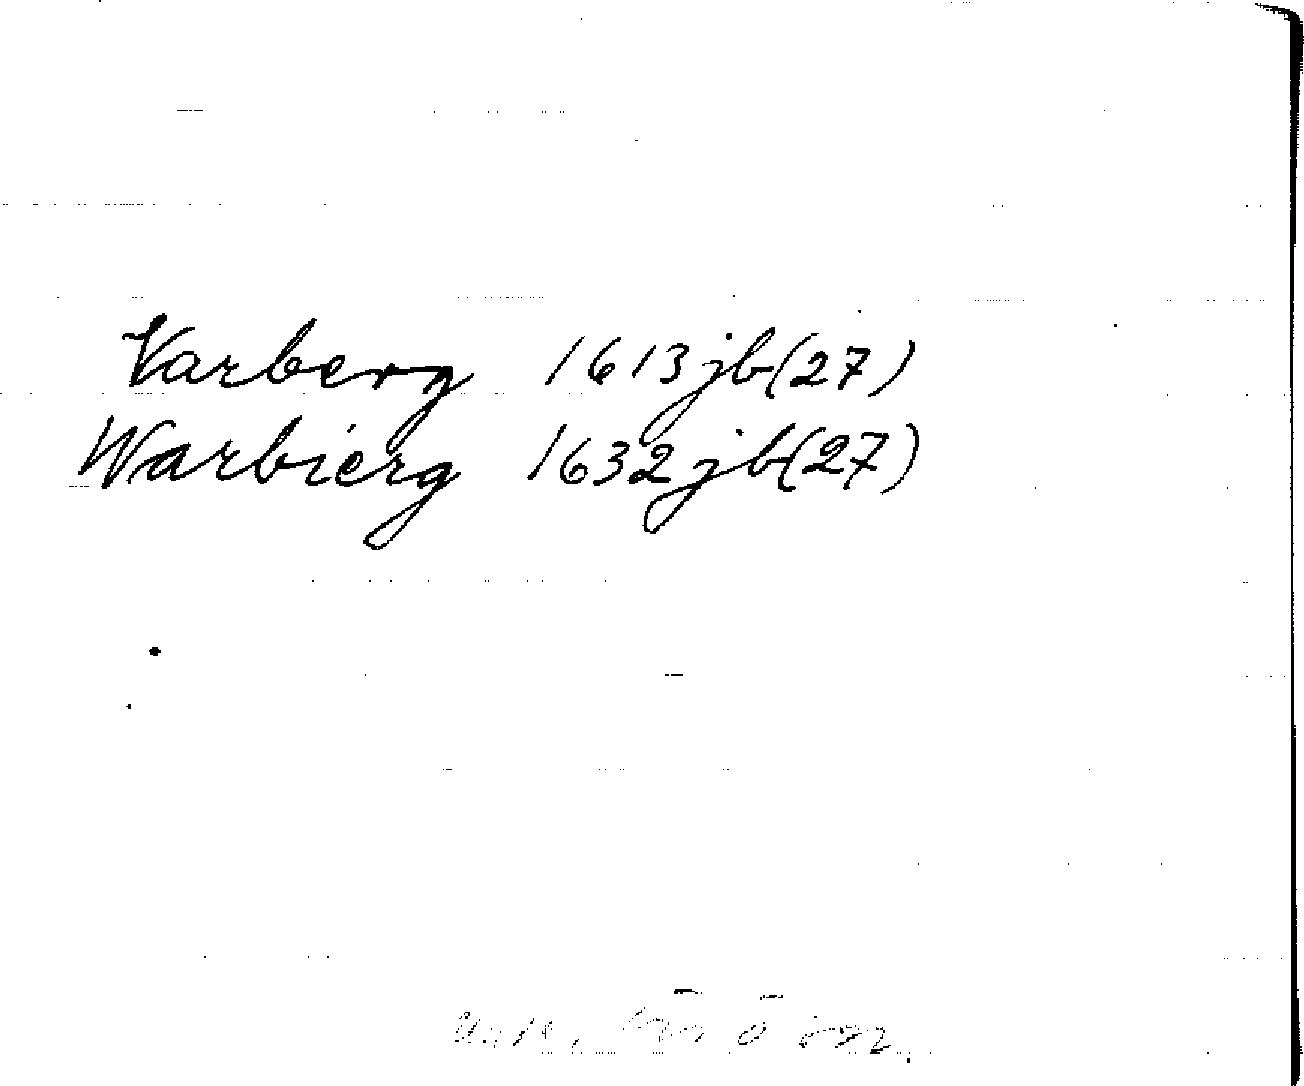 Varberg 1613 jb (27)
Warbierg 1632 jb (27)